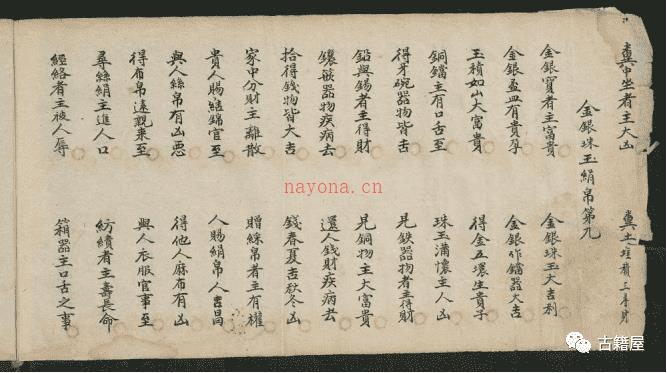 糞中坐者主大凶 糞土堆積主得財
金銀珠玉絹帛第九
金銀寶者主富貴 金銀珠玉大吉利
金銀盆皿有貴孕 金銀作鐺器大吉
玉積如山大富貴 得金玉環生貴子
銅鐺主有口舌至 珠玉滿懷主人凶
得牙碗器物皆吉 見鉄器物者主得財
鉛與錫者主得財 見銅物主大富貴
鑲嵌器物疾病去 還人錢財疾病去
拾得錢物皆大吉 錢春夏吉秋冬凶
家中分財主離散 贈綵帛者主有權
貴人賜錦官至 人賜絹帛人吉昌
與人絲帛有凶惡 得他人麻布有凶
得布帛遠親來至 與人衣服官事至
尋絲絹主進人口 紡績者主壽長命
經絡者主被人辱 箱器主口舌之事
nayona.cn
古籍屋